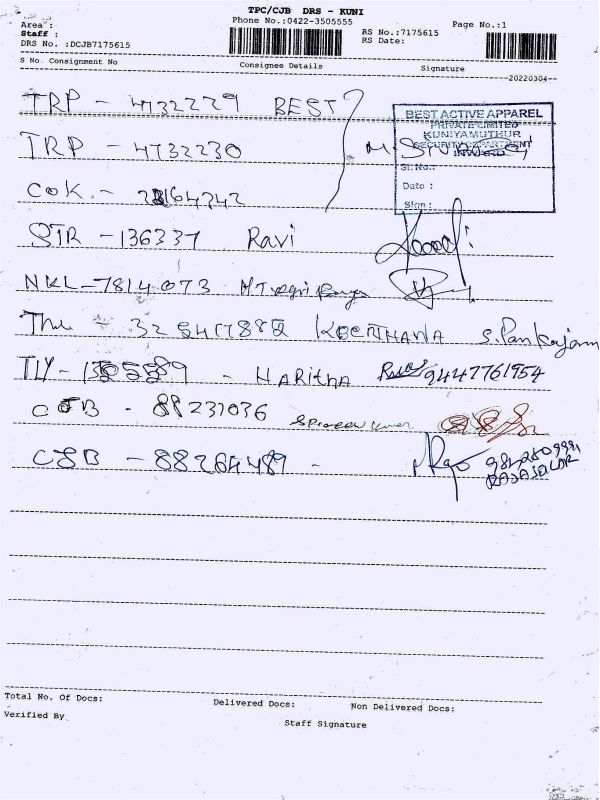 TPC/CJB DRS - KUNI
Area :
Phone No.:0422-3505555
Page No.:1
Staff :
RS No.:7175615
DRS No. :DCJB7175615
RS Date:
S No. Consignment No
Consignee Details
Signature
20220304
TRP - 4732229 BEST
BEST ACTIVE APPAREL
PRIVATE LIMITED
KUNIYAMUTHUR
SECURITY DEPARTMENT
INWARD
TRP - 4732230
Sl. No.:
Date :
Sign :
COK. -
STR - 136337 Ravi
NKL - 7814073
KEERTHANA S. Pankajam
TLY - - HARITHA 9447761954
CJB - 88231036
CJB - 88264489 -
RAJASEKAR
Total No. Of Docs:
Delivered Docs:
Non Delivered Docs:
Verified By
Staff Signature